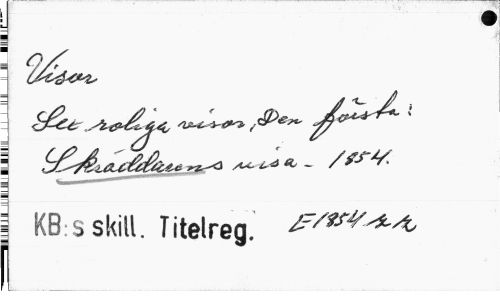 Visor
Sex roliga visor, Den första:
Skräddarens visa - 1854.
KB:s skill. Titelreg. E1854